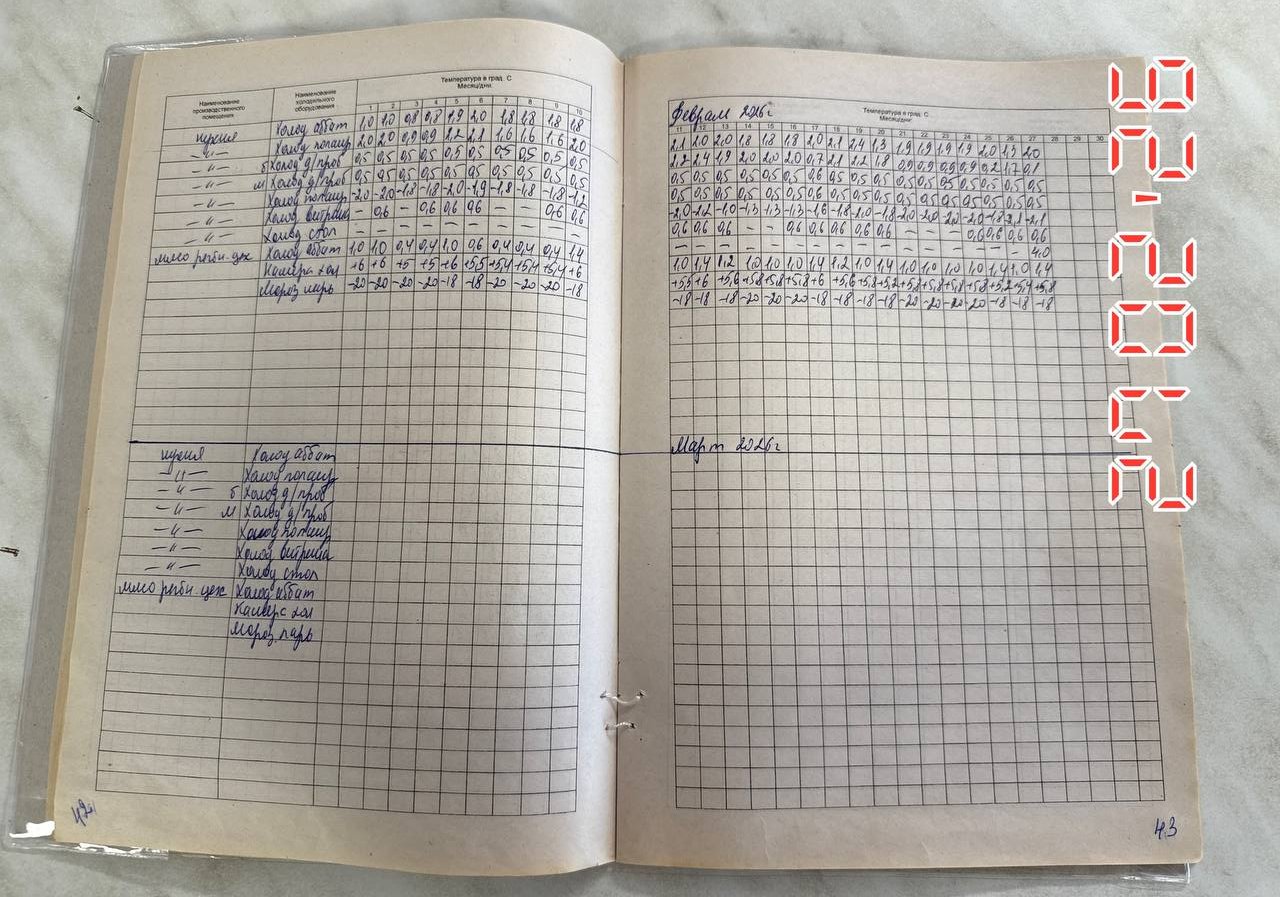 Наименование производственного помещения
Наименование холодильного оборудования
Температура в град. С
Месяц/дни
1 2 3 4 5 6 7 8 9 10
кухня Холод аббат 1,0 1,0 0,8 0,8 1,9 2,0 1,8 1,8 1,8 1,8
—"— Холод попаир 2,0 2,0 0,9 0,9 1,2 2,1 1,6 1,6 1,6 2,0
—"— б Холод д/проб 0,5 0,5 0,5 0,5 0,5 0,5 0,5 0,5 0,5 0,5
—"— м Холод д/проб 0,5 0,5 0,5 0,5 0,5 0,5 0,5 0,5 0,5 0,5
—"— Холод попаир -20 -20 -1,8 -1,8 -2,0 -1,9 -1,8 -1,8 -1,8 -1,2
—"— Холод витрина — 0,6 — 0,6 0,6 0,6 — — 0,6 0,6
—"— Холод стол — — — — — — — — — —
мясо рыбн цех Холод аббат 1,0 1,0 0,4 0,4 1,0 0,6 0,4 0,4 0,4 1,4
Камера хол +6 +6 +5 +5 +6 +5,5 +5,4 +5,4 +5,4 +6
Мороз ларь -20 -20 -20 -20 -18 -18 -20 -20 -20 -18
кухня Холод аббат
—"— Холод попаир
—"— б Холод д/проб
—"— м Холод д/проб
—"— Холод попаир
—"— Холод витрина
—"— Холод стол
мясо рыбн цех Холод аббат
Камера хол
Мороз. ларь
42
Февраль 2026г
Температура в град. С
Месяц/дни
11 12 13 14 15 16 17 18 19 20 21 22 23 24 25 26 27 28 29 30
2,1 2,0 2,0 1,8 1,8 1,8 2,0 2,1 2,4 1,3 1,9 1,9 1,9 1,9 2,0 1,3 2,0
2,2 2,4 1,9 2,0 2,0 2,0 0,7 2,1 2,2 1,8 0,9 0,9 0,8 0,9 0,2 1,7 0,1
0,5 0,5 0,5 0,5 0,5 0,5 0,6 0,5 0,5 0,5 0,5 0,5 0,5 0,5 0,5 0,5 0,5
0,5 0,5 0,5 0,5 0,5 0,5 0,6 0,5 0,5 0,5 0,5 0,5 0,5 0,5 0,5 0,5 0,5
-2,0 -2,2 -1,0 -1,3 -1,3 -1,3 -1,6 -1,8 -2,0 -1,8 -2,0 -2,0 -2,0 -2,0 -1,8 -2,1 -2,1
0,6 0,6 0,6 — — 0,6 0,6 0,6 0,6 0,6 — — — 0,6 0,6 0,6 0,6
— — — — — — — — — — — — — — — — 4,0
1,0 1,4 1,2 1,0 1,0 1,0 1,4 1,2 1,0 1,4 1,0 1,0 1,0 1,0 1,4 1,0 1,4
+5,5 +6 +5,6 +5,8 +5,8 +5,8 +6 +5,6 +5,8 +5,2 +5,8 +5,8 +5,8 +5,8 +5,2 +5,4 +5,8
-18 -18 -18 -20 -20 -20 -18 -18 -18 -18 -20 -20 -20 -20 -18 -18 -18
Март 2026г
43